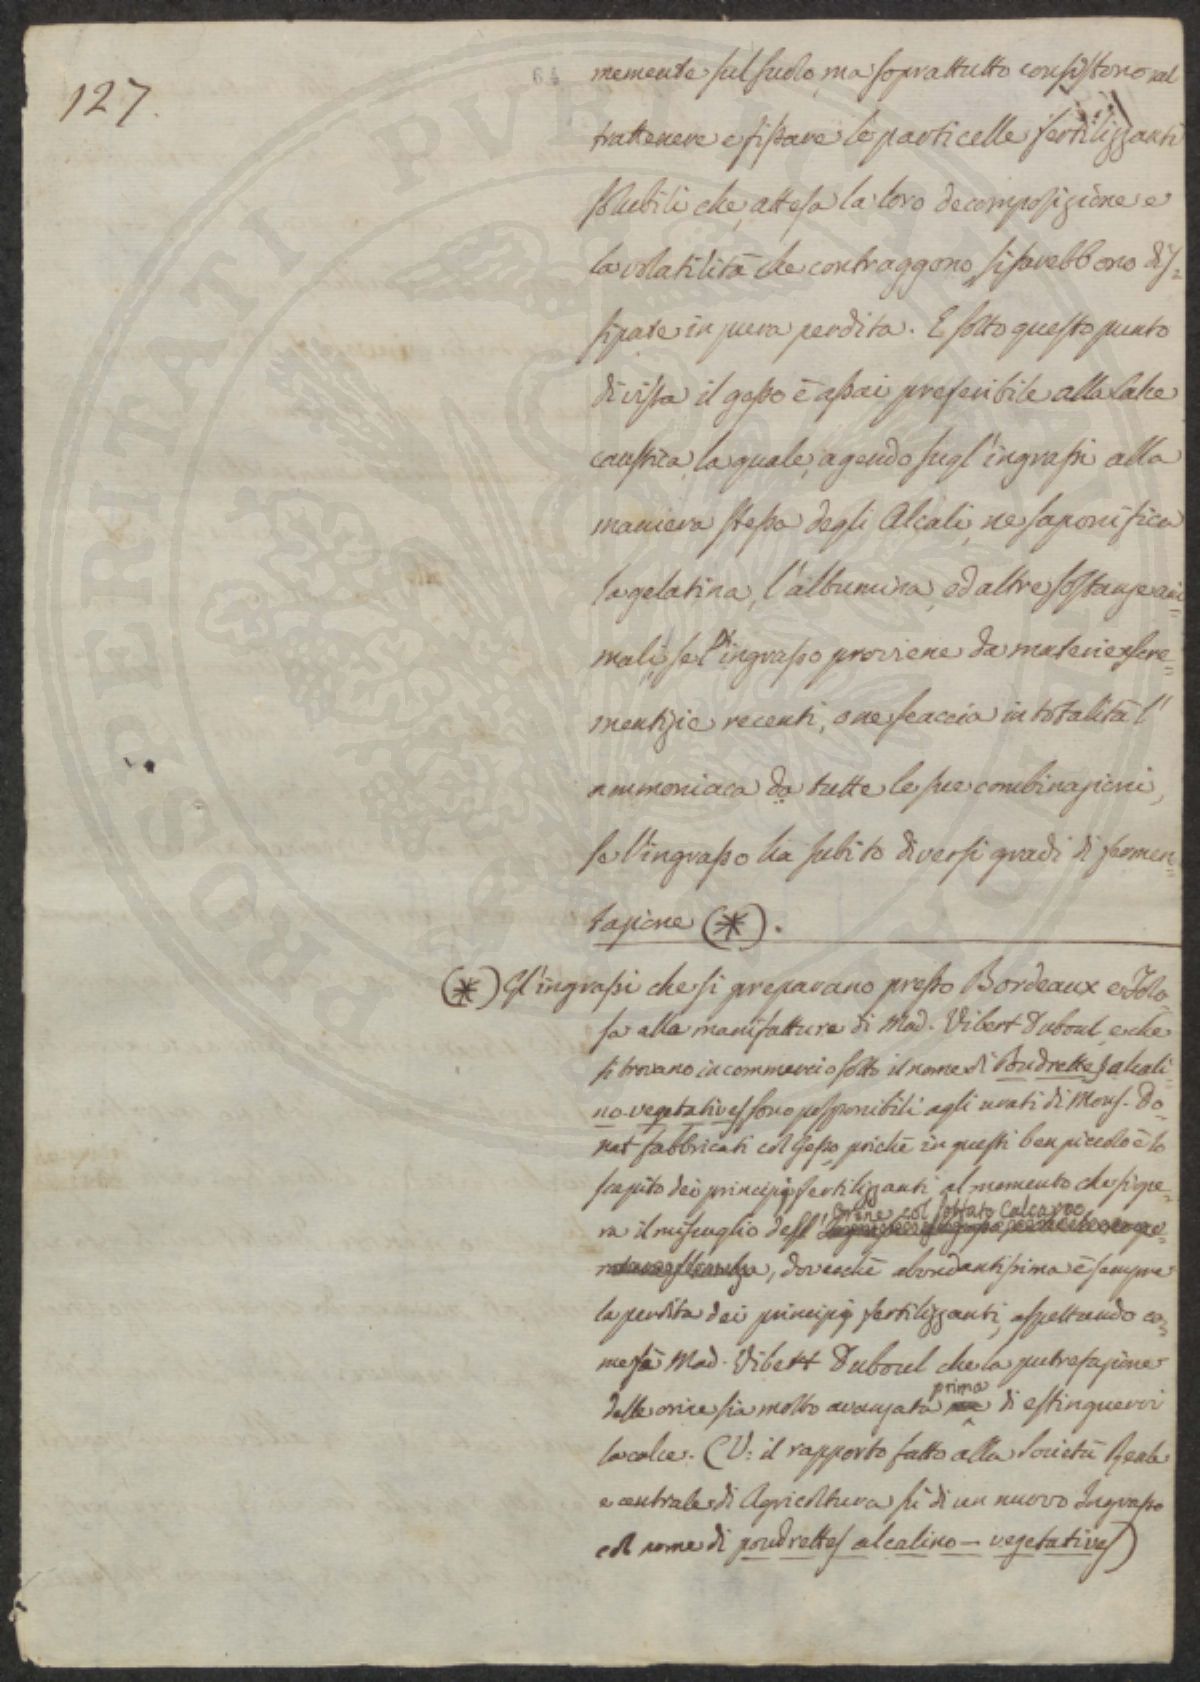 127.
64
memente sul suolo, ma soprattutto consistono nel
trattenere e fissare le particelle fertilizzanti
solubili che, attesa la loro decomposizione e
la volatilità che contraggono, si sarebbono dis=
sipate in pura perdita. E sotto questo punto
di vista il gesso è assai preferibile alla Calce
caustica, la quale, agendo sugl'ingrassi alla
maniera stessa degli Alcali, ne saponifica
la gelatina, l'albumina, ed altre sostanze ani=
mali, se l'ingrasso proviene da materie escre=
mentizie recenti, o ne scaccia in totalità l'
ammoniaca da tutte le sue combinazioni,
se l'ingrasso ha subito diversi gradi di fermen=
tazione (*).
(*) Gl'ingrassi che si preparano presso Bordeaux e Tolo=
sa alla manifatture di Mad. Vibert Duboul, e che
si trovano in commercio sotto il nome di Poudrettes alcali=
no-vegetatives sono posponibili agli urati di Mons. Do=
nat fabbricati col Gesso, poichè in questi ben piccolo è lo
scapito dei principj fertilizzanti al momento che si ope=
ra il miscuglio dell'Orine col solfato Calcareo
, dovecchè abondantissima è sempre
la perdita dei principj fertilizzanti, aspettando co=
me fà Mad. Vibert Duboul che la putrefazione
delle orine sia molto avanzata prima di estinguervi
la calce. (V: il rapporto fatto alla Società Reale
e centrale di Agricoltura sù di un nuovo Ingrasso
col nome di poudrettes alcalino - vegetatives)
PROSPERITATI PUBLICAE